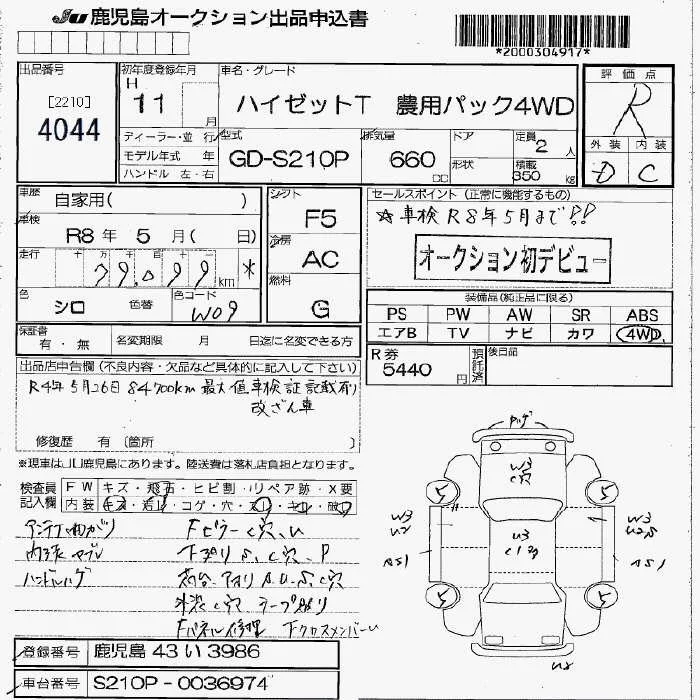 JU 鹿児島オークション出品申込書
*2000304917*
出品番号
[2210]
4044
初年度登録年月
H 11 月
車名・グレード
ハイゼットT 農用パック4WD
評価点
R
外装 内装
D C
ディーラー・並行
モデル年式 年
ハンドル 左・右
型式
GD-S210P
排気量
660 CC
ドア
形状
定員
2人
積載
350 kg
車歴
自家用( )
車検
R8年 5月( 日)
走行
十 万 千 百 十 一
79,099 km *
色
シロ 色替
色コード
W09
シフト
F5
冷房
AC
燃料
G
セールスポイント(正常に機能するもの)
☆車検R8年5月まで!!
オークション初デビュー
装備品(純正品に限る)
PS PW AW SR ABS
エアB TV ナビ カワ 4WD
保証書
有・無
名変期限 月 日迄に名変できる方
R券
5440円
預託済
後日品
出品店申告欄(不良内容・欠品など具体的に記入して下さい)
R4年5月26日 84700km 最大値車検証記載有り
改ざん車
修復歴 有(箇所 )
※現車はJU鹿児島にあります。陸送費は落札店負担となります。
検査員記入欄
FW キズ・飛石・ヒビ割・リペア跡・X要
内装 キズ・岩汚・コゲ・穴・スレ・キレ・破れ
アンテナ曲がり
Fピラー C穴、U
内張ヤブレ
下廻り S、C穴、P
ハンドルハゲ
荷台・アオリ A.U.S.C穴
外装C穴 テープ貼り
Fパネル修理 FクロスメンバーU
登録番号
鹿児島 43 い 3986
車台番号
S210P-0036974
W3
C穴
5
5
W3
U2
W3
AS1
U3
AS1
5
5
U2